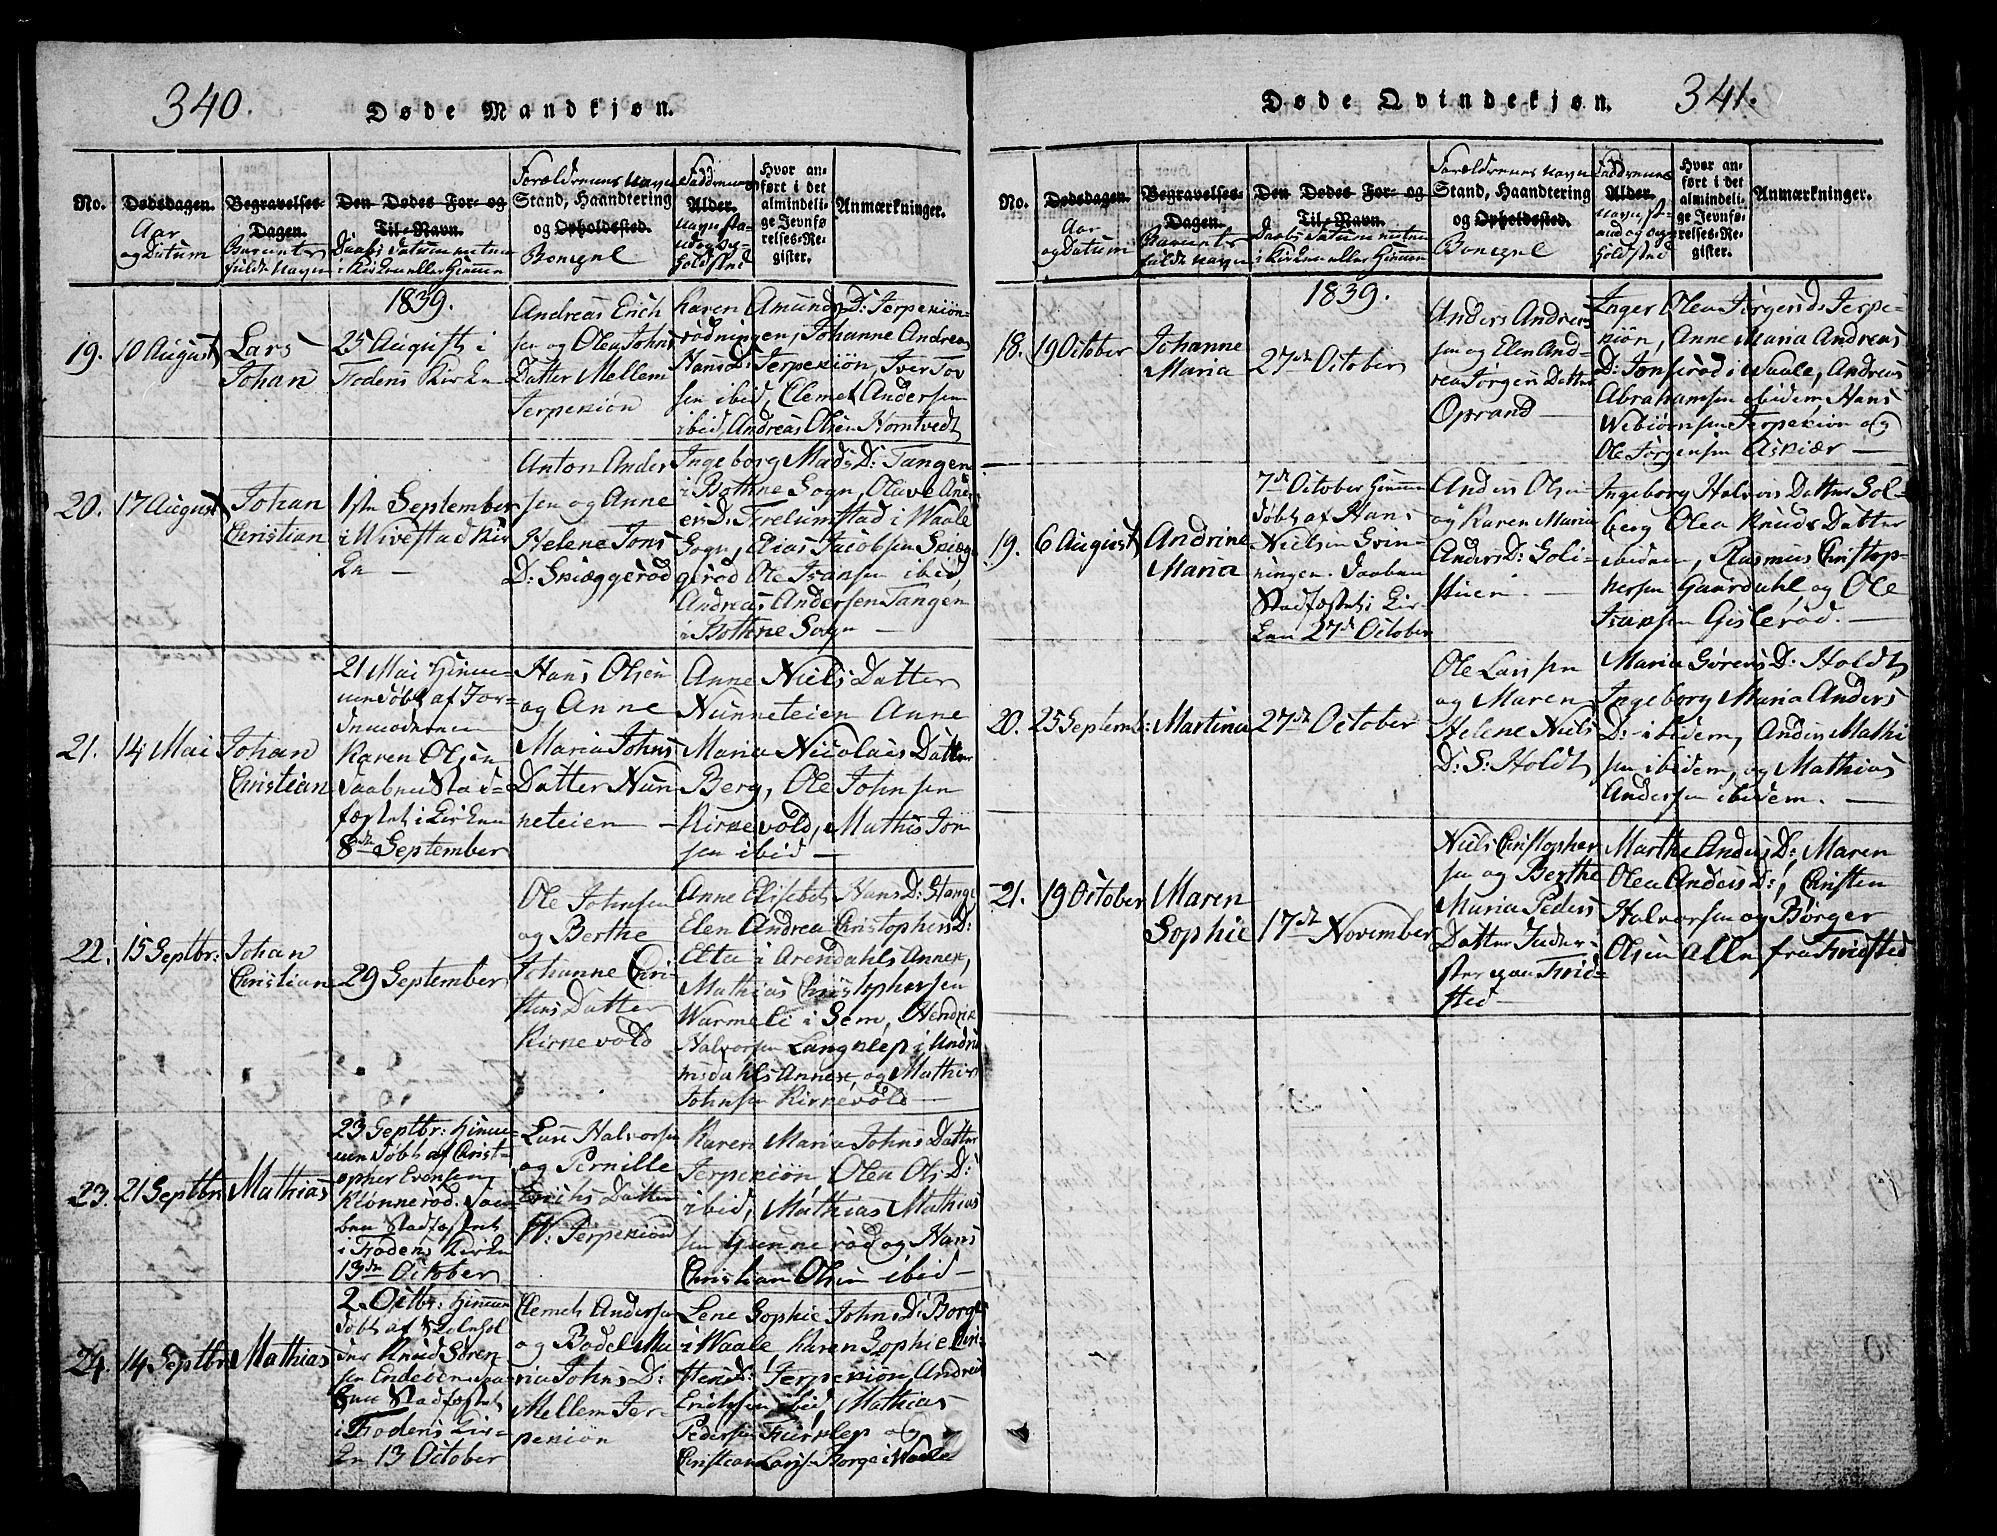 340.
Døde Mandkjøn.
No.
Dødsdagen.
Aar
og Datum
Begravelses-
Dagen.
Barnets
fulde Navn
Den Dødes For- og
Til-Navn.
Daabs Datum enten
i Kirken eller Hiemme
Forældrenes Navn
Stand, Haandtering
og Opholdssted.
Bopæl
Faddernes
Alder.
Navn Sta-
nd og Op-
holdsted
Hvor an-
ført i det
almindeli-
ge Jevnfø-
relses-Re-
gister.
Anmærkninger.
1839.
19.
10 August
Lars
Johan
25 August i
Fodens Kirke
Andreas Erich
sen og Olea Johns
Datter Mellem
Terpekiøn
Karen Amunds D: Terpekiøn-
rødningen, Johanne Andreas
Hans D: Terpekiøn, Iver Tov
sen ibid, Clemet Andersen
ibid, Andreas Olsen Horntvedt
20.
17 August
Johan
Christian
1ste September
i Wivestad Kir
ke
Anton Ander
sen og Anne
Helene Jons
D: Skiæggerød
Ingeborg Mads D: Tangen
i Bothne Sogn, Olave And-
ers D: Frelumstad i Waale
Sogn, Elias Jacobsen Skiæg
gerød Ole Fransen ibid,
Andreas Andersen Tangen
i Bothne Sogn
21.
14 Mai
Johan
Christian
21 Mai Hiem-
mendøbt af Jor-
demoderen
Karen Olsen
Daaben Stad-
fæstet i Kirken
8de September
Hans Olsen
og Anne
Maria Johns
Datter Nun
neteien
Anne Niels Datter
Nunneteien Anne
Maria Nicolais Datter
Berg, Ole Johnsen
Kirkevold, Mathis Jon
sen ibid
22.
15 Septbr:
Johan
Christian
29 September
Ole Johnsen
og Berthe
Johanne Chri-
stens Datter
Kirkevold
Anne Elisebet Hans D: Stange
Elen Andrea Christophers D:
Elta i Arendahls Annex,
Mathias Christophersen
Warmeli i Sem, Hendrik
Halvorsen Langklep i Andri
msdahls Annex, og Mathis
Johnsen Kirkevold
23.
21 Septbr
Mathias
23 Septbr: Hiem-
men døbt af Christ-
opher Evensen
Klonnerød. Daa-
ben Stadfæstet
i Fodens Kirke
13de October
Lars Halvorsen
og Pernille
Erichs Datter
N: Terpekiøn
Karen Maria Johns Datter
Terpekiøn, Olea Ols D:
ibid, Mathias Mathias
sen Gunnerød og Hans
Christian Olsen ibid
24.
14 Septbr
Mathias
2 Octbr: Hiemmen
døbt af Skolehol
der Knud Søren
sen Endeben Daa-
ben Stadfæstet
i Fodens Kir-
ke 13 October
Clemet Andersen
og Bodel Ma
ria Johns D:
Mellem Ter-
pekiøn
Lene Sophie Johns D: Borge
i Waale, Karen Sophie Chri-
stens D: Terpekiøn, Andreas
Erichsen ibid, Mathias
Pedersen Fuerklep og
Christian Lars: Borge i Waale
Døde Qvindekjøn.
341.
No.
Dødsdagen.
Aar
og Datum
Begravelses-
Dagen.
Barnets
fulde Navn
Den Dødes For- og
Til-Navn.
Daabs Datum enten
i Kirken eller Hiemme
Forældrenes Navn
Stand, Haandtering
og Opholdssted.
Bopæl
Faddernes
Alder.
Navn St-
and og Op-
holdsted
Hvor an-
ført i det
almindeli-
ge Jevnfø-
relses-Re-
gister.
Anmærkninger.
1839.
18.
19 October
Johanne
Maria
27de October
Anders Andres
sen og Elen And-
rea Jørgens Datter
Oprand
Inger Olea Jørgens D: Terpe-
kiøn, Anne Maria Andreas
D: Jonserød i Waale, Andreas
Abrahamsen ibidem, Hans
Wibiørnsen Terpekiøn og
Ole Jørgensen Askiær
19.
6 August
Andrine
Maria
7de October Hiemme
døbt af Hans
Nielsen Svin-
ningen. Daaben
Stadfæstet i Kir-
ken 27de October
Anders Olsen
og Karen Maria
Anders D: Soli-
stuen
Ingeborg Halvors Datter Sol-
berg Olea Knuds Datter
ibidem, Rasmus Christop-
hersen Gaardahl, og Ole
Fransen Gislerød.
20.
25 Septemb:
Martina
27de October
Ole Larssen
og Maren
Helene Niels
D: S: Holdt
Maria Sørens D: Holdt,
Ingeborg Maria Anders
D: ibidem, Anders Mathi
sen ibidem, og Mathias
Andersen ibidem.
21.
19 October
Maren
Sophie
17de November
Niels Christopher
sen og Berthe
Maria Peders
Datter Inder-
ster paa Fred-
sted
Marthe Anders D: Maren
Olea Anders D:, Christen
Halvorsen og Børger
Olsen alle fra Fredsted